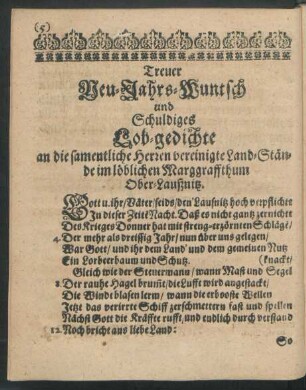 (5)
Treuer
Neu-Jahrs-Wuntsch
und
Schuldiges
Lob-gedichte
an die samentliche Herren vereinigte Land-Stän-
de im löblichen Marggraffthum
Ober-Laußnitz.
Gott u. ihr/Väter/seids/den Laußnitz hoch verpflichtet
In dieser Zeit Nacht. Daß es nicht gantz zernichtet
Des Krieges Donner hat mit streng-erzörnten Schläge/
4. Der mehr als dreissig Jahr/nun über uns gelegen/
War Gott/ und ihr dem Land und dem gemeinen Nutz
Ein Lorbeerbaum und Schutz. (knackt/
Gleich wie der Steuermann/wann Mast und Segel
8. Der rauhe Hagel brumt/die Lufft wird angestackt/
Die Winde blasen lern/ wann die erbooste Wellen
Jetzt das verirrte Schiff zerschmettern fast und spellen
Nächst Gott die Kräffte rufft/und endlich durch verstand
12. Noch bricht ans liebe Land:
So